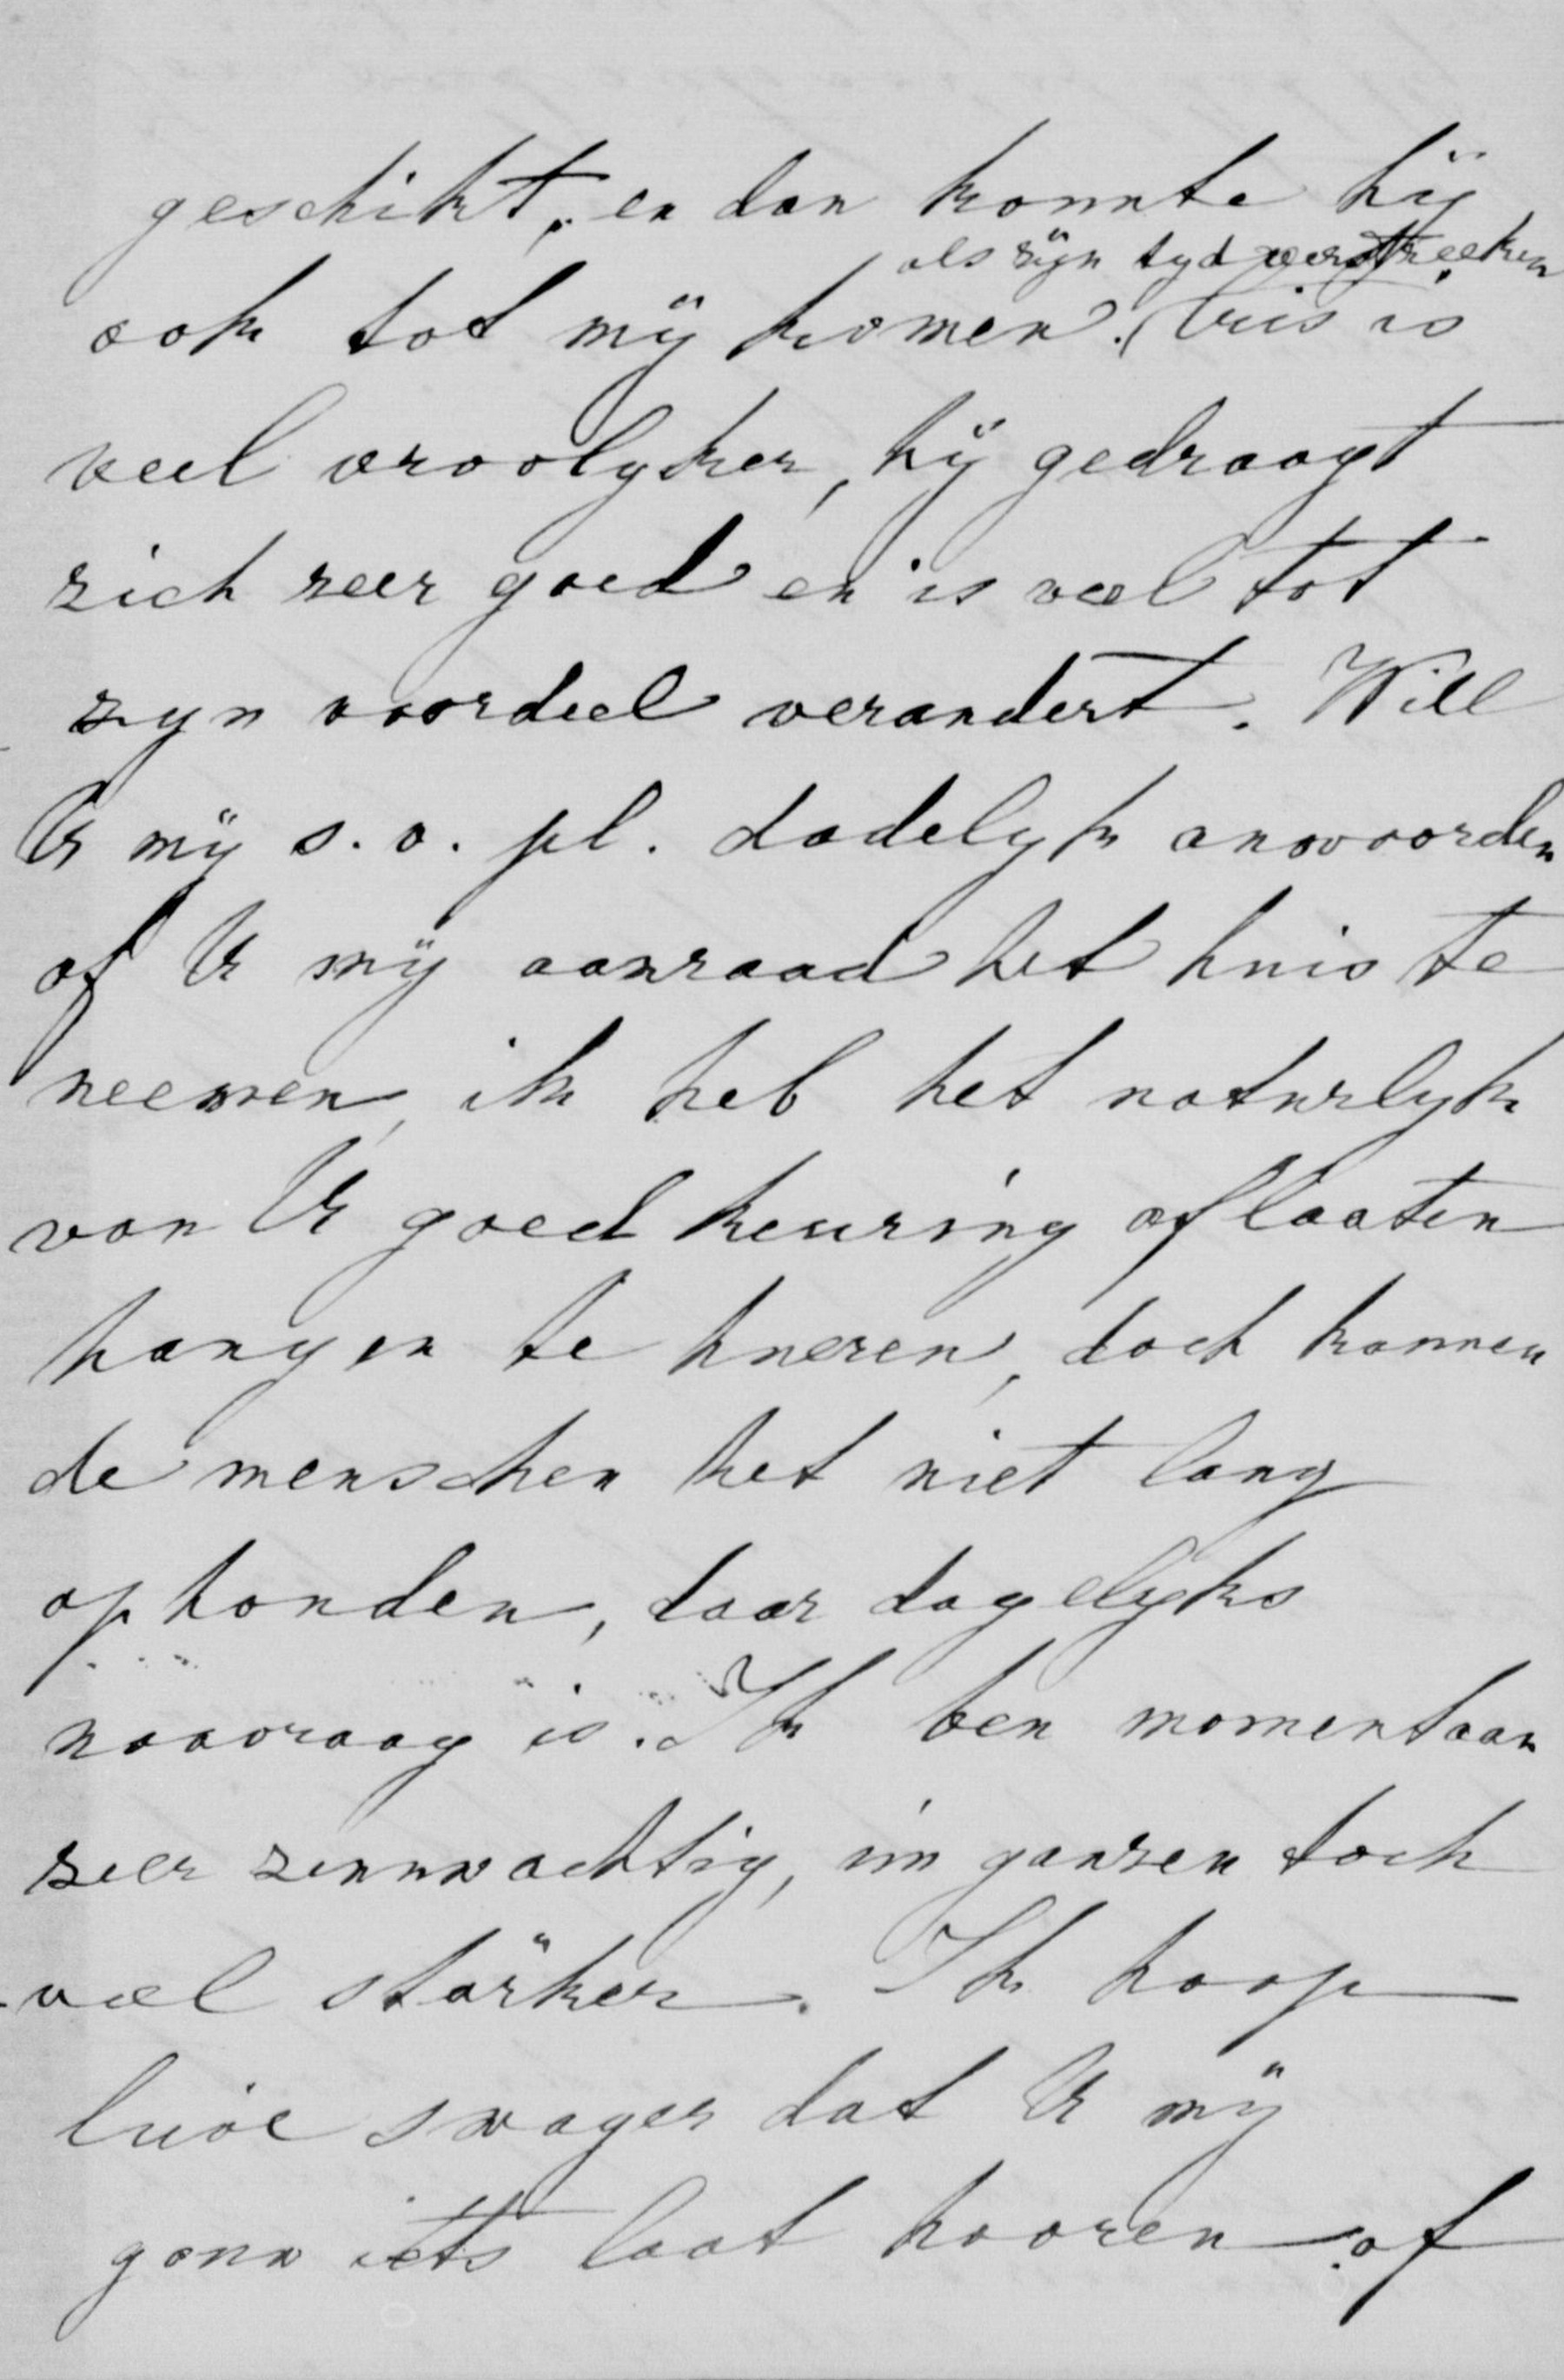 geschikt, en dan konnte hÿ
als zÿn tyd verstreeken
ook tot mÿ komen. Cris is
veel vroolyker, hÿ gedraagt
zich zeer goed en is veel tot
zyn voordeel verandert. Will
U mÿ s. v. pl. dadelyk anwoorden
of U mÿ aanraad het huis te
neemen, ik heb het naturlyk
van U goed keuring af laaten
hangen te hueren, doch kannen
de menschen het niet lang
op houden, daar dagelyks
naavraag is. Ik ben momentaan
zeer zenuwachtig, im ganzen doch
veel stärker. Ik hoop
lieve swager dat U mÿ
gauw iets laat hooren of